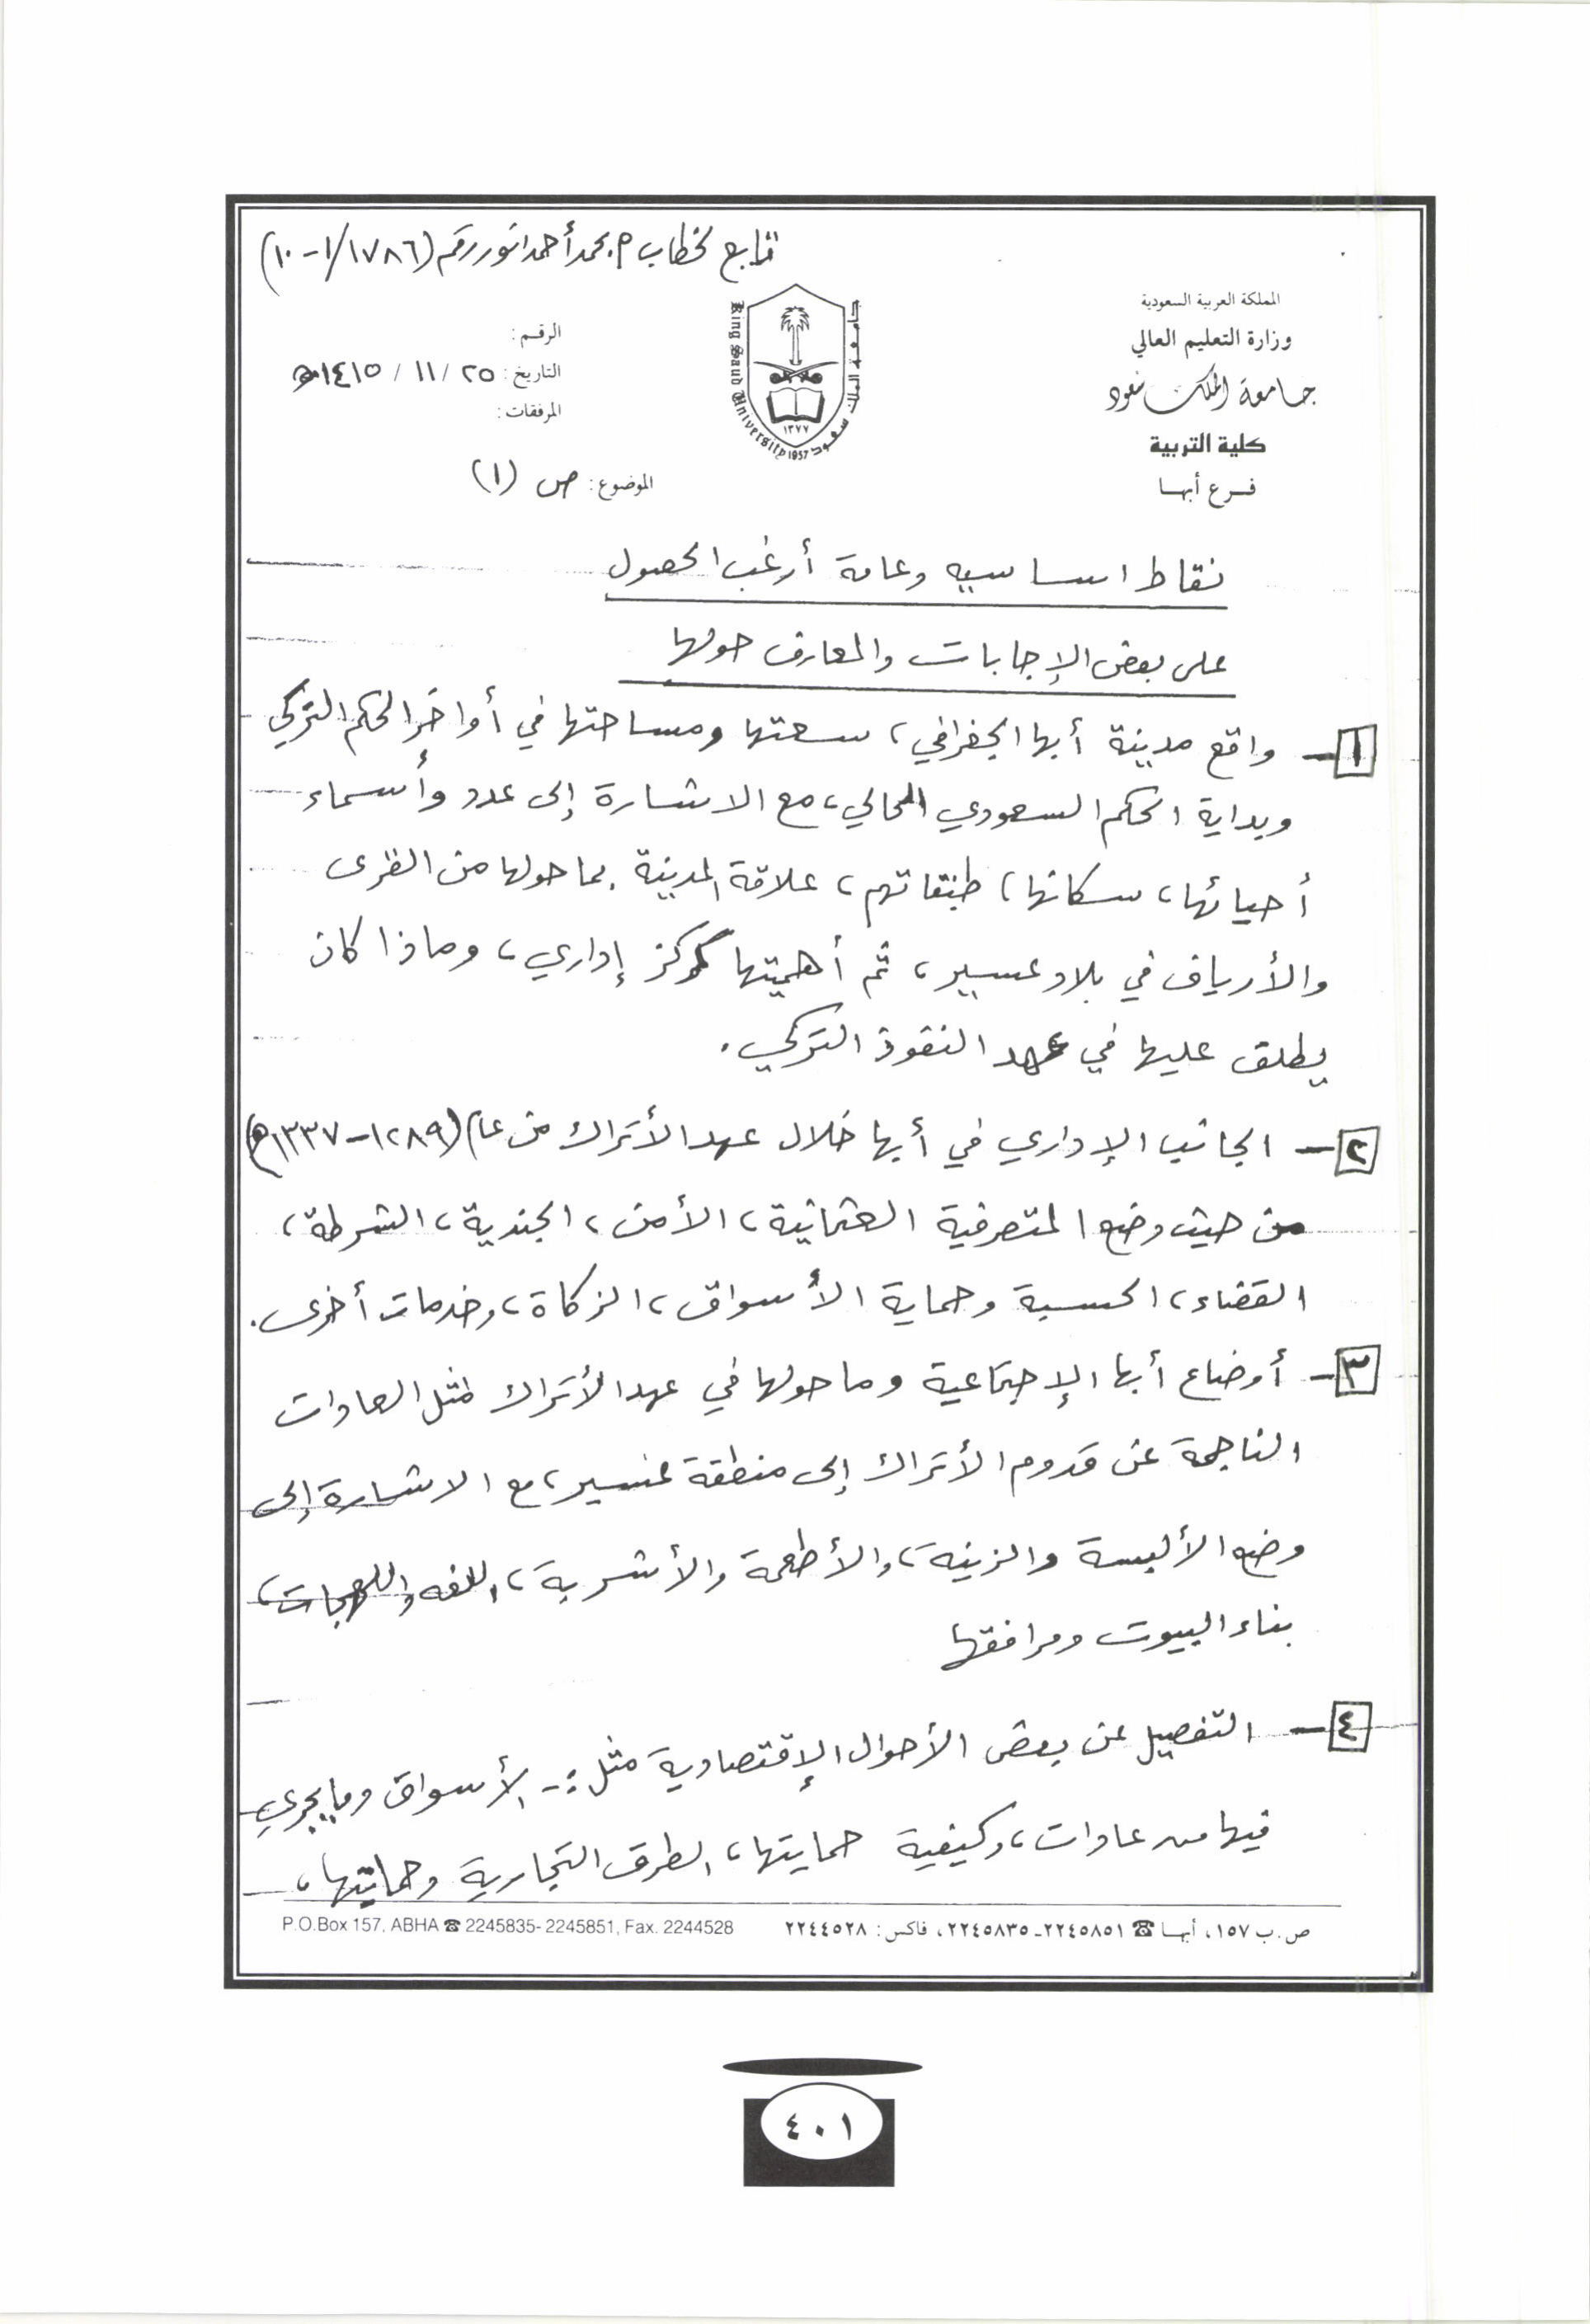 تابع لخطاب م. محمد أحمد انور رقم (١٠-١/١٧٨٦)
المملكة العربية السعودية
وزارة التعليم العالي
جامعة الملك سعود
كلية التربية
فرع أبها
جامعة الملك سعود
King Saud University
١٣٧٧
1957
الرقم:
التاريخ: ٢٥ / ١١ / ١٤١٥هـ
المرفقات:
الموضوع: ص (١)
نقاط اساسيه وعامة أرغب الحصول
على بعض الإجابات والمعارف حولها
١- واقع مدينة أبها الجغرافي، سعتها ومساحتها في أواخر الحكم التركي
وبداية الحكم السعودي الحالي، مع الاشارة إلى عدد وأسماء
أحيائها، سكانها، طبقاتهم، علاقة المدينة بما حولها من القرى
والأرياف في بلاد عسير، ثم أهميتها كمركز إداري، وماذا كان
يطلق عليها في عهد النفوذ التركي.
٢- الجانب الإداري في أبها خلال عهد الأتراك من عام (١٢٨٩-١٣٣٧هـ)
من حيث وضع المتصرفية العثمانية، الأمن، الجندية، الشرطة،
القضاء، الحسبة وحماية الأسواق، الزكاة، وخدمات أخرى.
٣- أوضاع أبها الإجتماعية وما حولها في عهد الأتراك مثل العادات
الناجمة عن قدوم الأتراك إلى منطقة عسير، مع الاشارة إلى
وضع الألبسة والزينة، والأطعمة والأشربة، اللغه واللهجات،
بناء البيوت ومرافقها
٤- التفصيل عن بعض الأحوال الإقتصادية مثل :- الأسواق وما يجري
فيها من عادات، وكيفية حمايتها، الطرق التجارية وحمايتها،
P.O.Box 157, ABHA ☎ 2245835- 2245851, Fax. 2244528
ص.ب ١٥٧، أبها ☎ ٢٢٤٥٨٥١ـ ٢٢٤٥٨٣٥، فاكس: ٢٢٤٤٥٢٨
٤٠١